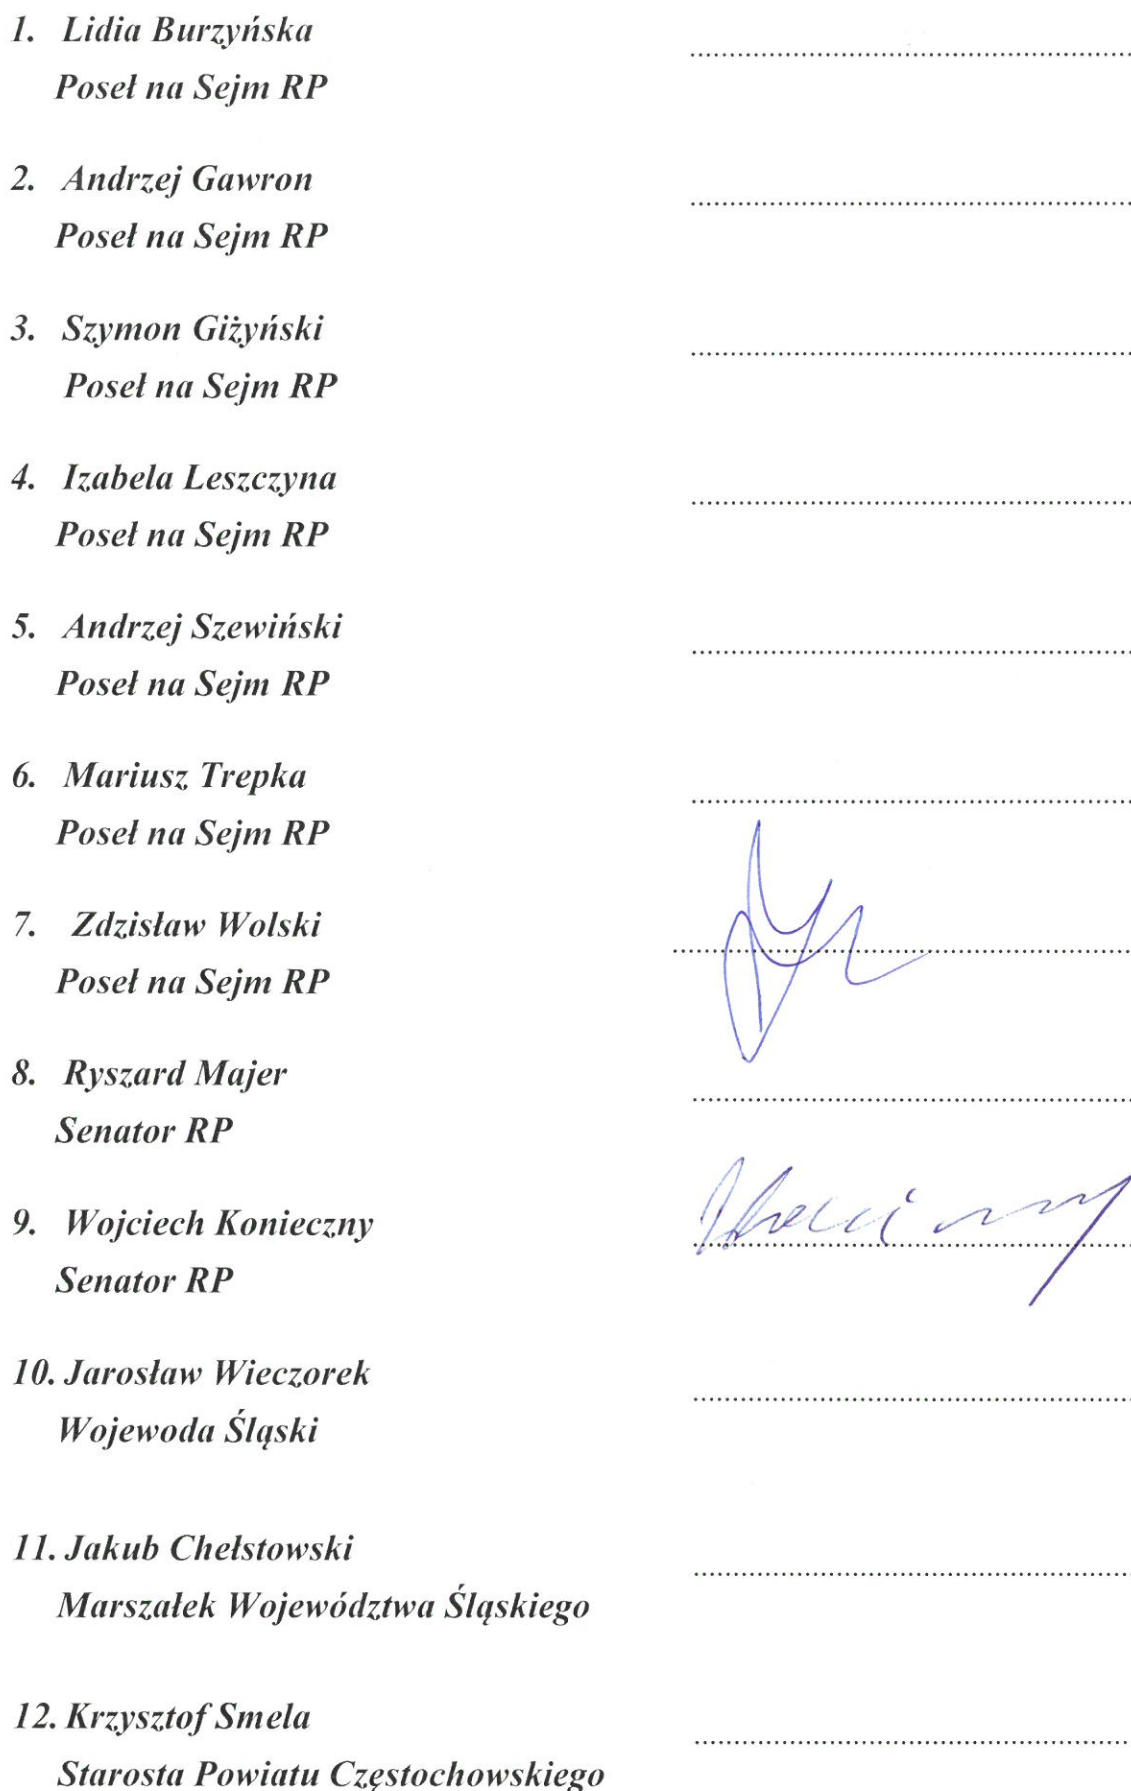 1. Lidia Burzyńska
Poseł na Sejm RP
2. Andrzej Gawron
Poseł na Sejm RP
3. Szymon Giżyński
Poseł na Sejm RP
4. Izabela Leszczyna
Poseł na Sejm RP
5. Andrzej Szewiński
Poseł na Sejm RP
6. Mariusz Trepka
Poseł na Sejm RP
7. Zdzisław Wolski
Poseł na Sejm RP
8. Ryszard Majer
Senator RP
9. Wojciech Konieczny
Senator RP
10. Jarosław Wieczorek
Wojewoda Śląski
11. Jakub Chełstowski
Marszałek Województwa Śląskiego
12. Krzysztof Smela
Starosta Powiatu Częstochowskiego